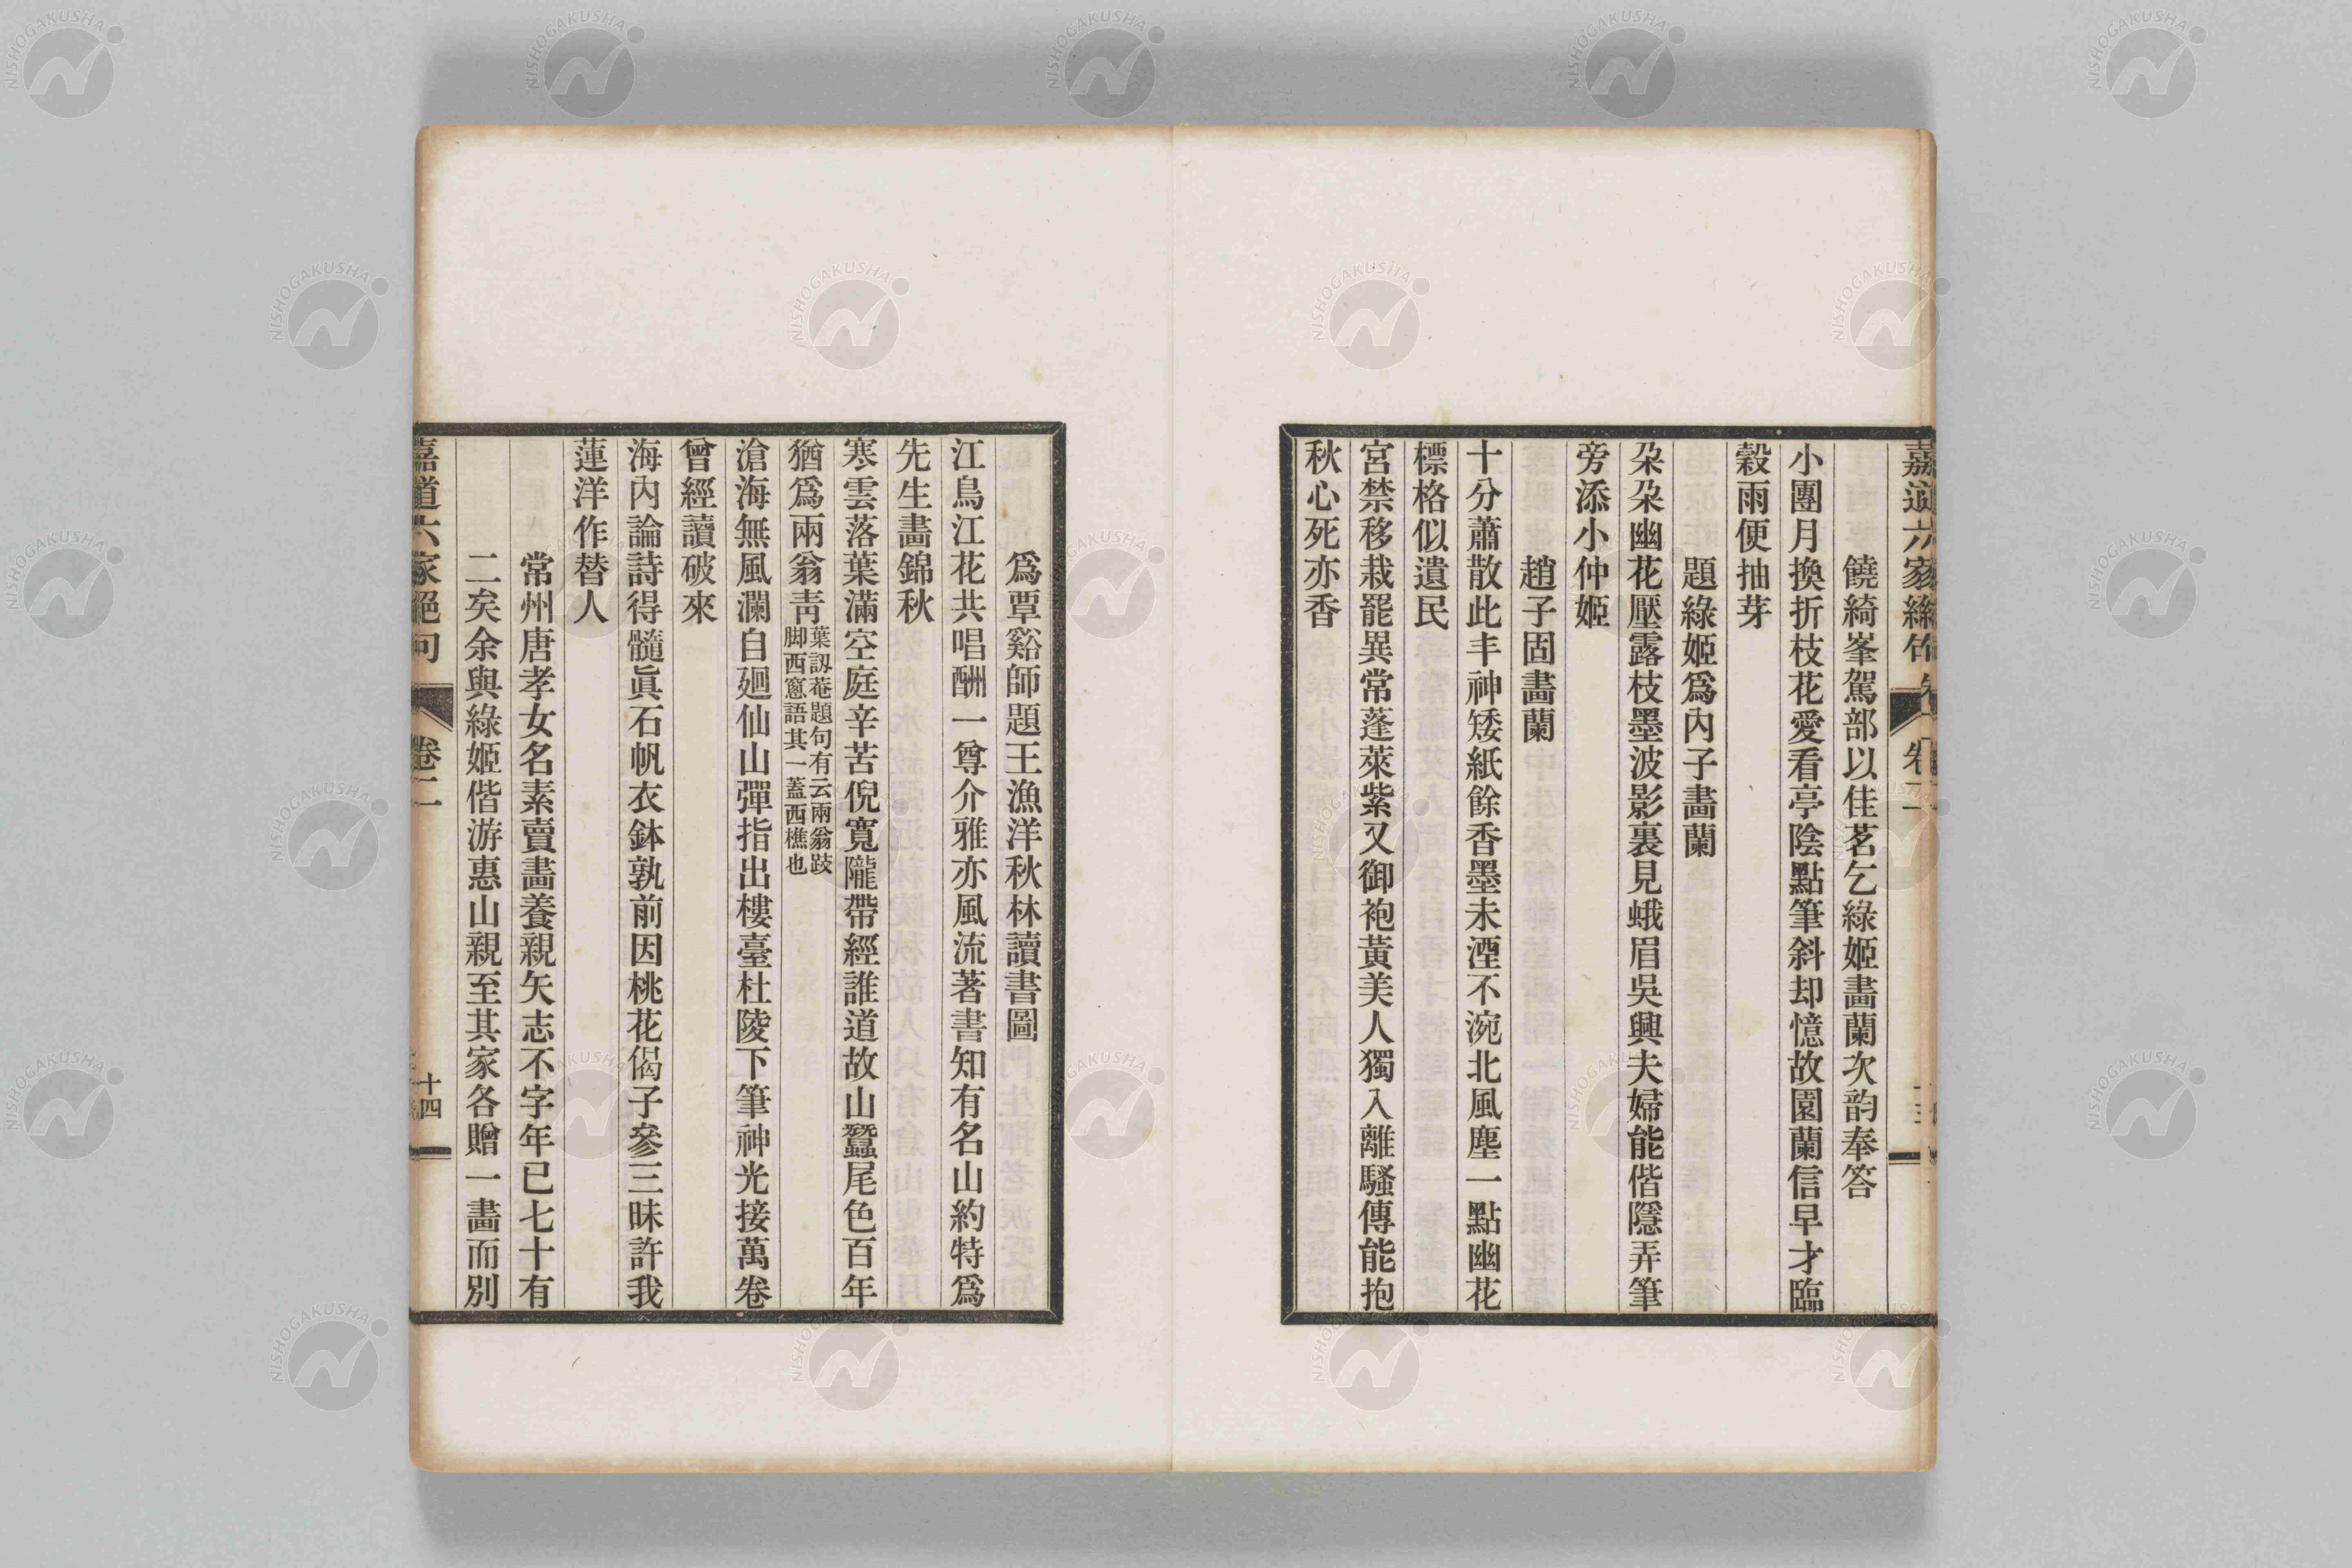 嘉道六家絶句 卷二
饒綺峯駕部以佳茗乞綠姬畫蘭次韵奉答
小團月換折枝花愛看亭陰點筆斜却憶故園蘭信早才臨
穀雨便抽芽
題綠姬爲内子畫蘭
朶朶幽花壓露枝墨波影裏見蛾眉吳興夫婦能偕隱弄筆
旁添小仲姬
趙子固畫蘭
十分蕭散此丰神矮紙餘香墨未湮不涴北風塵一點幽花
標格似遺民
宮禁移栽罷異常蓬萊紫又御袍黃美人獨入離騷傳能抱
秋心死亦香
爲覃谿師題王漁洋秋林讀書圖
江鳥江花共唱酬一尊介雅亦風流著書知有名山約特爲
先生畫錦秋
寒雲落葉滿空庭辛苦倪寬隴帶經誰道故山蠶尾色百年
猶爲兩翁靑葉訒菴題句有云兩翁跂脚西窻語其一蓋西樵也
滄海無風瀾自廻仙山彈指出樓臺杜陵下筆神光接萬卷
曾經讀破來
海内論詩得髓眞石帆衣鉢孰前因桃花偈子參三昧許我
蓮洋作替人
常州唐孝女名素賣畫養親矢志不字年已七十有
二矣余與綠姬偕游惠山親至其家各贈一畫而別
嘉道六家絶句 卷二 十四
NISHOGAKUSHA